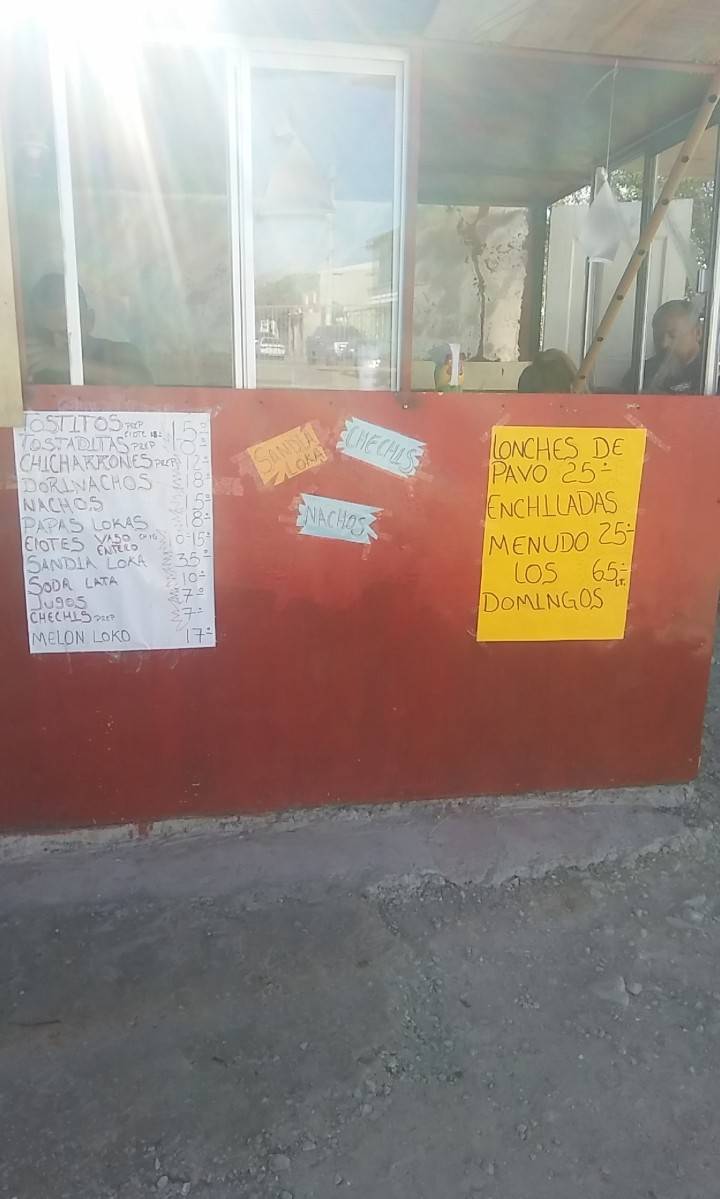 TOSTITOS PREP 15=
TOSTADITAS PREP
CHICHARRONES PREP 12=
DORINACHOS 18=
NACHOS 15=
PAPAS LOKAS 18=
ElOTES VASO
ENTERO
SANDIA LOKA 35=
SODA LATA 10=
JUGOS 7=
CHECHIS PREP 7=
MELON LOKO 17=
SANDIA
LOKA
CHECHIS
NACHOS
LONCHES DE
PAVO 25=
ENCHILADAS
MENUDO 25=
LOS 65= LT.
DOMINGOS